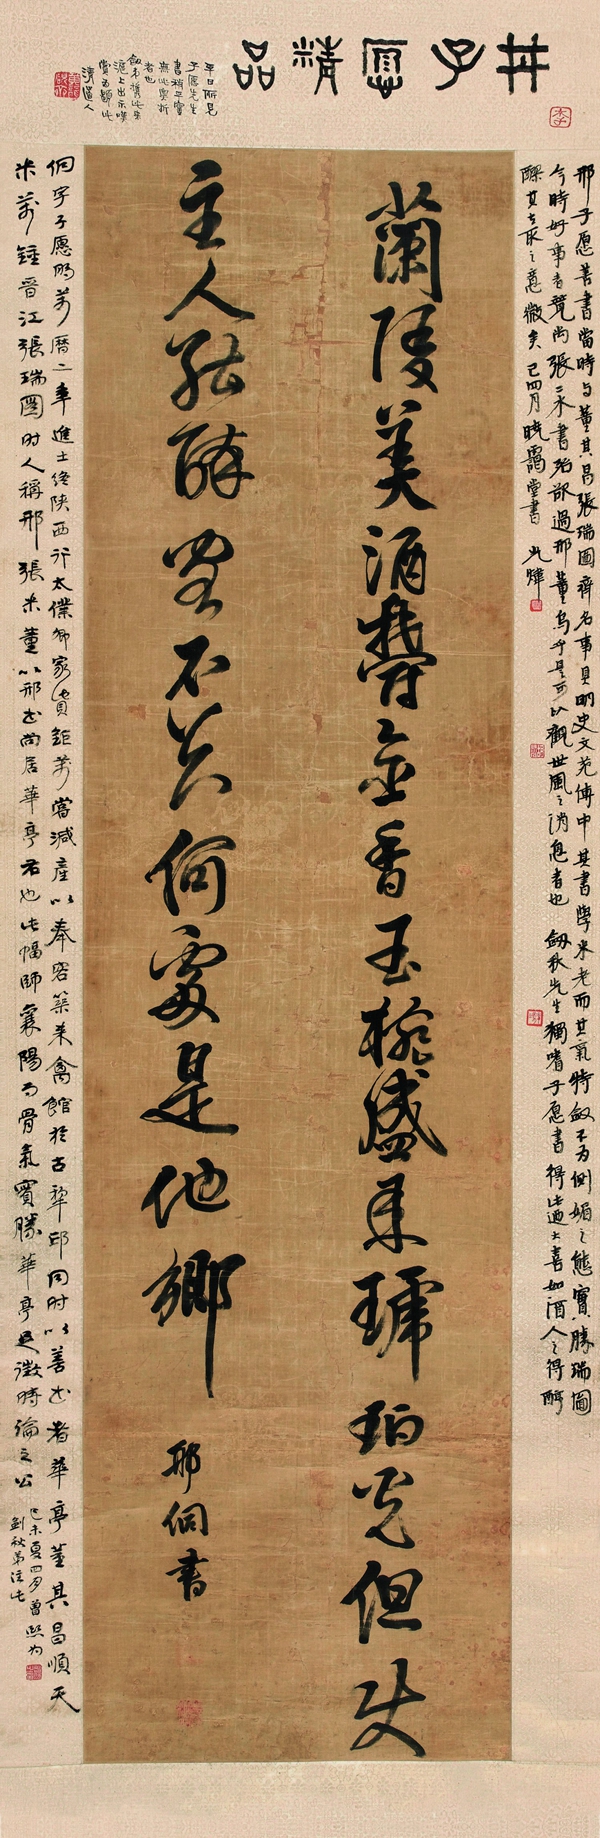 邢子愿精品
平日所見
子愿先生
書精平實
者也
劍弟携此来
滬上出示嘆
賞為題此
清道人
邢子愿善書當時与董其昌張瑞圖齊名事具明史文苑傳中其書學米老而其氣特斂不为側媚之態實勝瑞圖
今時好事者競尚張二水書殆欲過邢董烏乎是可以觀世風之消息者也 劒秋先生獨嗜子愿書得此過大喜如酒人之得酹
醪其去取之意微矣 己四月曉霞堂書 光煒
蘭陵美酒鬱金香玉椀盛來琥珀光但使
主人能醉客不知何處是他鄉
邢侗書
侗字子愿明萬曆二年進士終陝西行太僕卿家貲鉅萬嘗減產以奉客築来禽館於古犂邱同时以善书者華亭董其昌順天
米萬鍾晋江張瑞圖时人稱邢張米董以邢书尚居華亭右也此幅師襄陽而骨氣實勝華亭足徵時論之公
己未夏四月曾熙为
劍秋弟注此